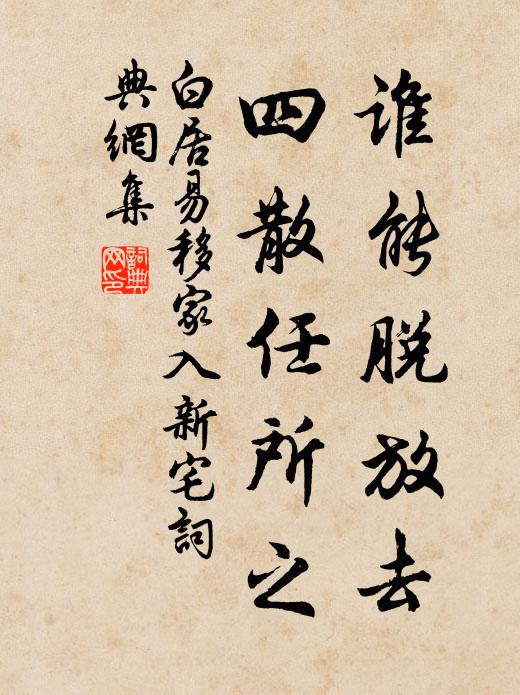 谁能脱放去
四散任所之
白居易移家入新宅詞
典網集
詞典
网印